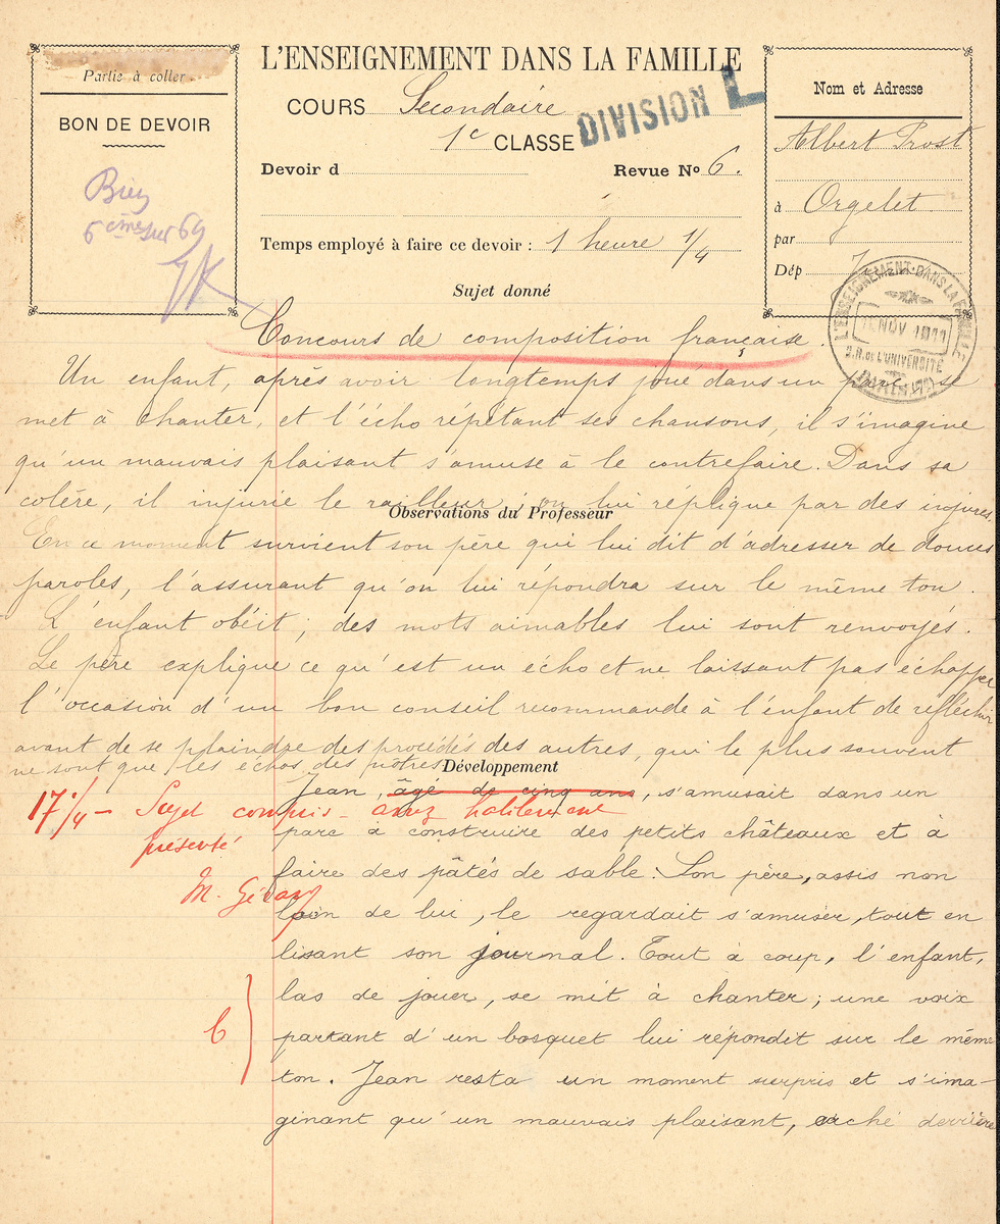 Partie à coller.
BON DE DEVOIR
Bien
6ème sur 69
L'ENSEIGNEMENT DANS LA FAMILLE
COURS Secondaire
1e CLASSE
DIVISION L
Devoir d
Revue No 6.
Temps employé à faire ce devoir : 1 heure 1/4
Nom et Adresse
Albert Prost
à Orgelet
par
Dép J
L'ENSEIGNEMENT DANS LA FAMILLE
NOV 1911
Sujet donné
Concours de composition française.
Un enfant, après avoir longtemps joué dans un se
met à chanter, et l'écho répétant ses chansons, il s'imagine
qu'un mauvais plaisant s'amuse à le contrefaire. Dans sa
colère, il injurie le railleur ; on lui réplique par des injures.
Observations du Professeur
En ce moment survient son père qui lui dit d'adresser de douces
paroles, l'assurant qu'on lui répondra sur le même ton.
L'enfant obéit ; des mots aimables lui sont renvoyés.
Le père explique ce qu'est un écho et ne laissant pas échapper
l'occasion d'un bon conseil recommande à l'enfant de réfléchir
avant de se plaindre des procédés des autres, qui le plus souvent
ne sont que les échos des nôtres.
Développement
17 1/4 - Sujet compris - assez habilement
présenté
Jean, âgé de cinq ans, s'amusait dans un
parc à construire des petits châteaux et à
faire des pâtés de sable. Son père, assis non
loin de lui, le regardait s'amuser, tout en
lisant son journal. Tout à coup, l'enfant,
las de jouer, se mit à chanter ; une voix
partant d'un bosquet lui répondit sur le même
ton. Jean resta un moment surpris et s'ima-
ginant qu'un mauvais plaisant, caché derrière